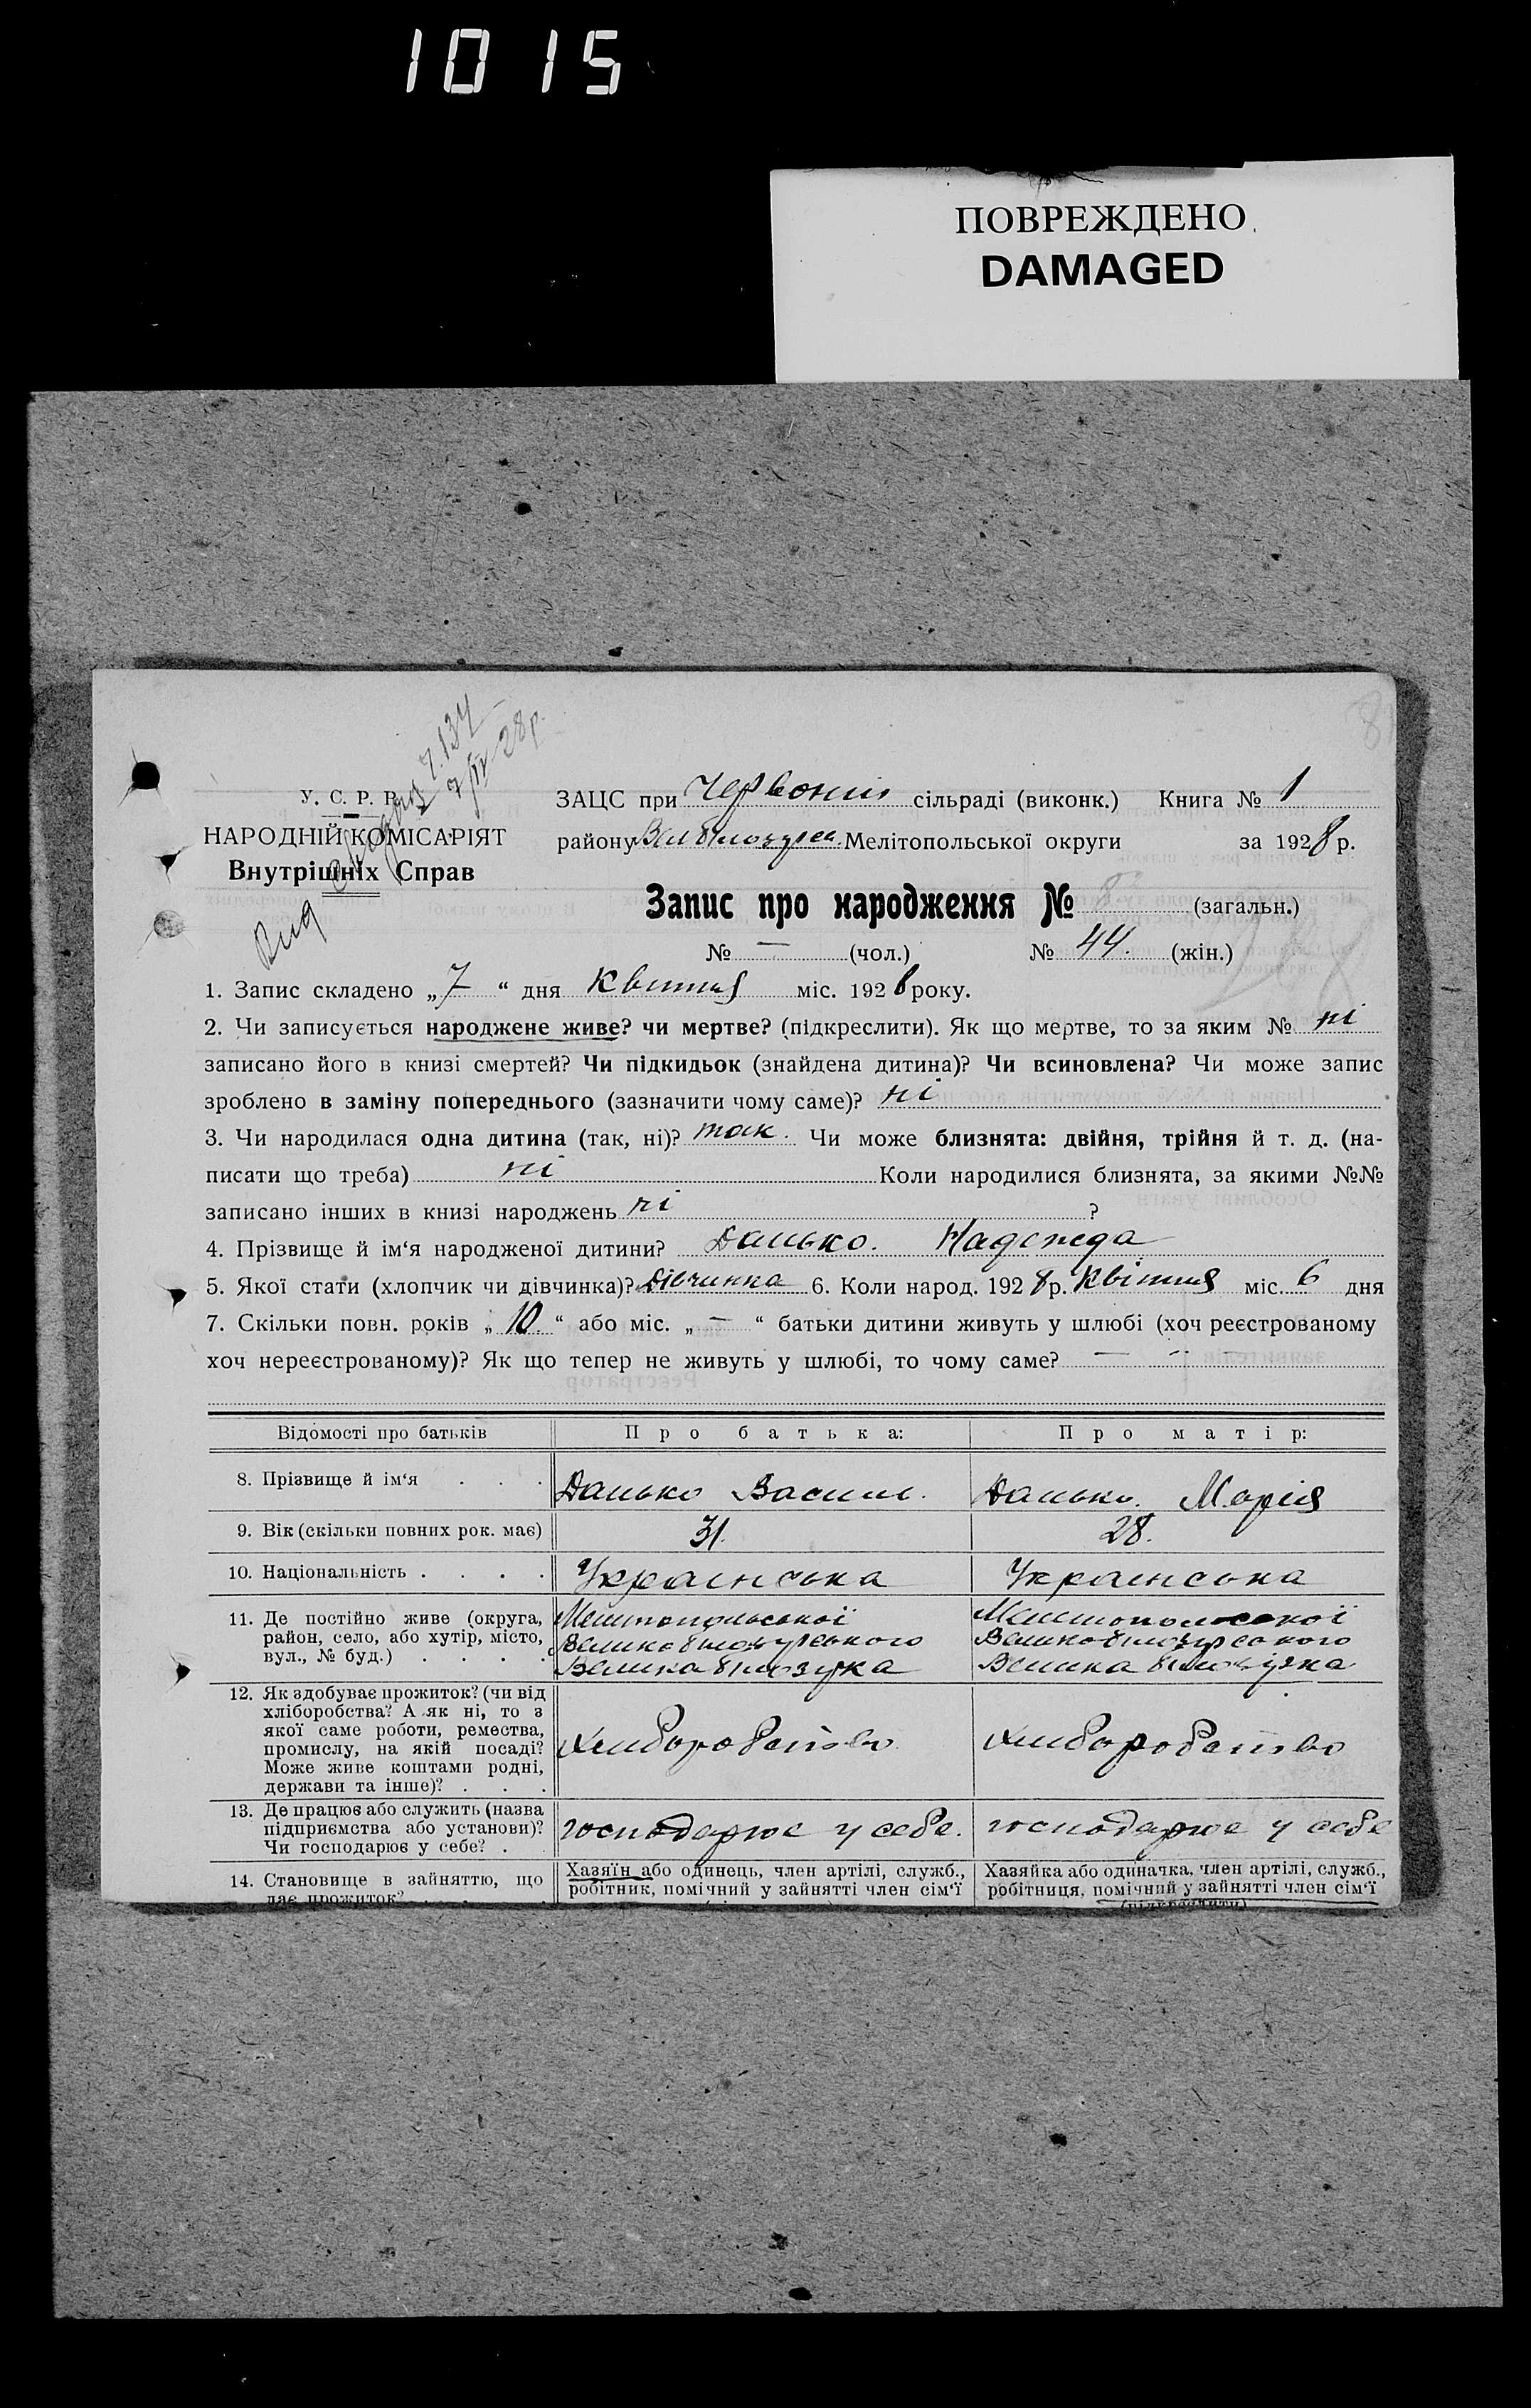 1015
ПОВРЕЖДЕНО
DAMAGED
134
7/IV 28р.
У. С. Р. Р.
НАРОДНІЙ КОМІСАРІЯТ
Внутрішніх Справ
ЗАЦС при Червоній сільраді (виконк.) Книга № 1
району Вел Білозірск. Мелітопольської округи за 1928 р.
Запис про народження № (загальн.)
№ — (чол.) № 44. (жін.)
1. Запис складено „7“ дня Квітня міс. 1928 року.
2. Чи записується народжене живе? чи мертве? (підкреслити). Як що мертве, то за яким № ні
записано його в книзі смертей? Чи підкидьок (знайдена дитина)? Чи всиновлена? Чи може запис
зроблено в заміну попереднього (зазначити чому саме)? ні
3. Чи народилася одна дитина (так, ні)? так. Чи може близнята: двійня, трійня й т. д. (на-
писати що треба) ні Коли народилися близнята, за якими №№
записано інших в книзі народжень ні ?
4. Прізвище й ім‘я народженої дитини? Данько. Надежда
5. Якої стати (хлопчик чи дівчинка)? Дівчинка 6. Коли народ. 1928 р. Квітня міс. 6 дня
7. Скільки повн. років „10.“ або міс. „—“ батьки дитини живуть у шлюбі (хоч реєстрованому
хоч нереєстрованому)? Як що тепер не живуть у шлюбі, то чому саме? —
Відомості про батьків Про батька: Про матір:
8. Прізвище й ім‘я . . . Данько Васил. Данько. Марія
9. Вік (скільки повних рок. має) 31. 28.
10. Національність . . . . Українська Українська
11. Де постійно живе (округа,
район, село, або хутір, місто,
вул., № буд.) . . . .
Мелітопольської
Великобілозурського
Велика Білозурка
Мелітопольської
Великобілозурського
Велика Білозірка
12. Як здобуває прожиток? (чи від
хліборобства? А як ні, то з
якої саме роботи, ремества,
промислу, на якій посаді?
Може живе коштами родні,
держави та інше)? . . .
Хліборобство
Хліборобство
13. Де працює або служить (назва
підприємства або установи)?
Чи господарює у себе? .
господарює у себе.
господарює у себе
14. Становище в зайняттю, що
дає прожиток?
Хазяїн або одинець, член артілі, служб.,
робітник, помічний у зайнятті член сім‘ї
Хазяйка або одиначка, член артілі, служб.,
робітниця, помічний у зайнятті член сім‘ї
(підкреслити)